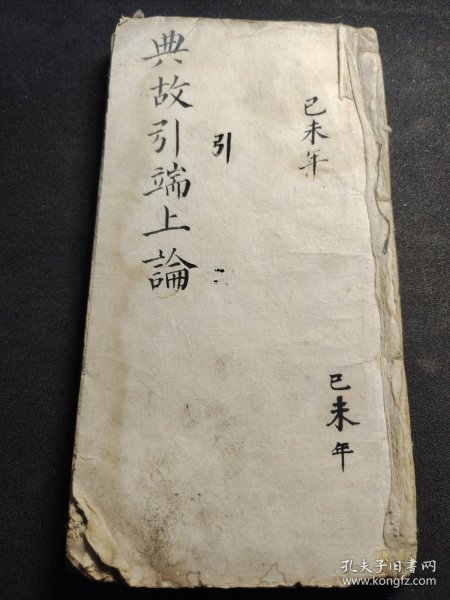 己未年
己未年
引
典故引端上論
孔夫子旧书网
www.kongfz.com